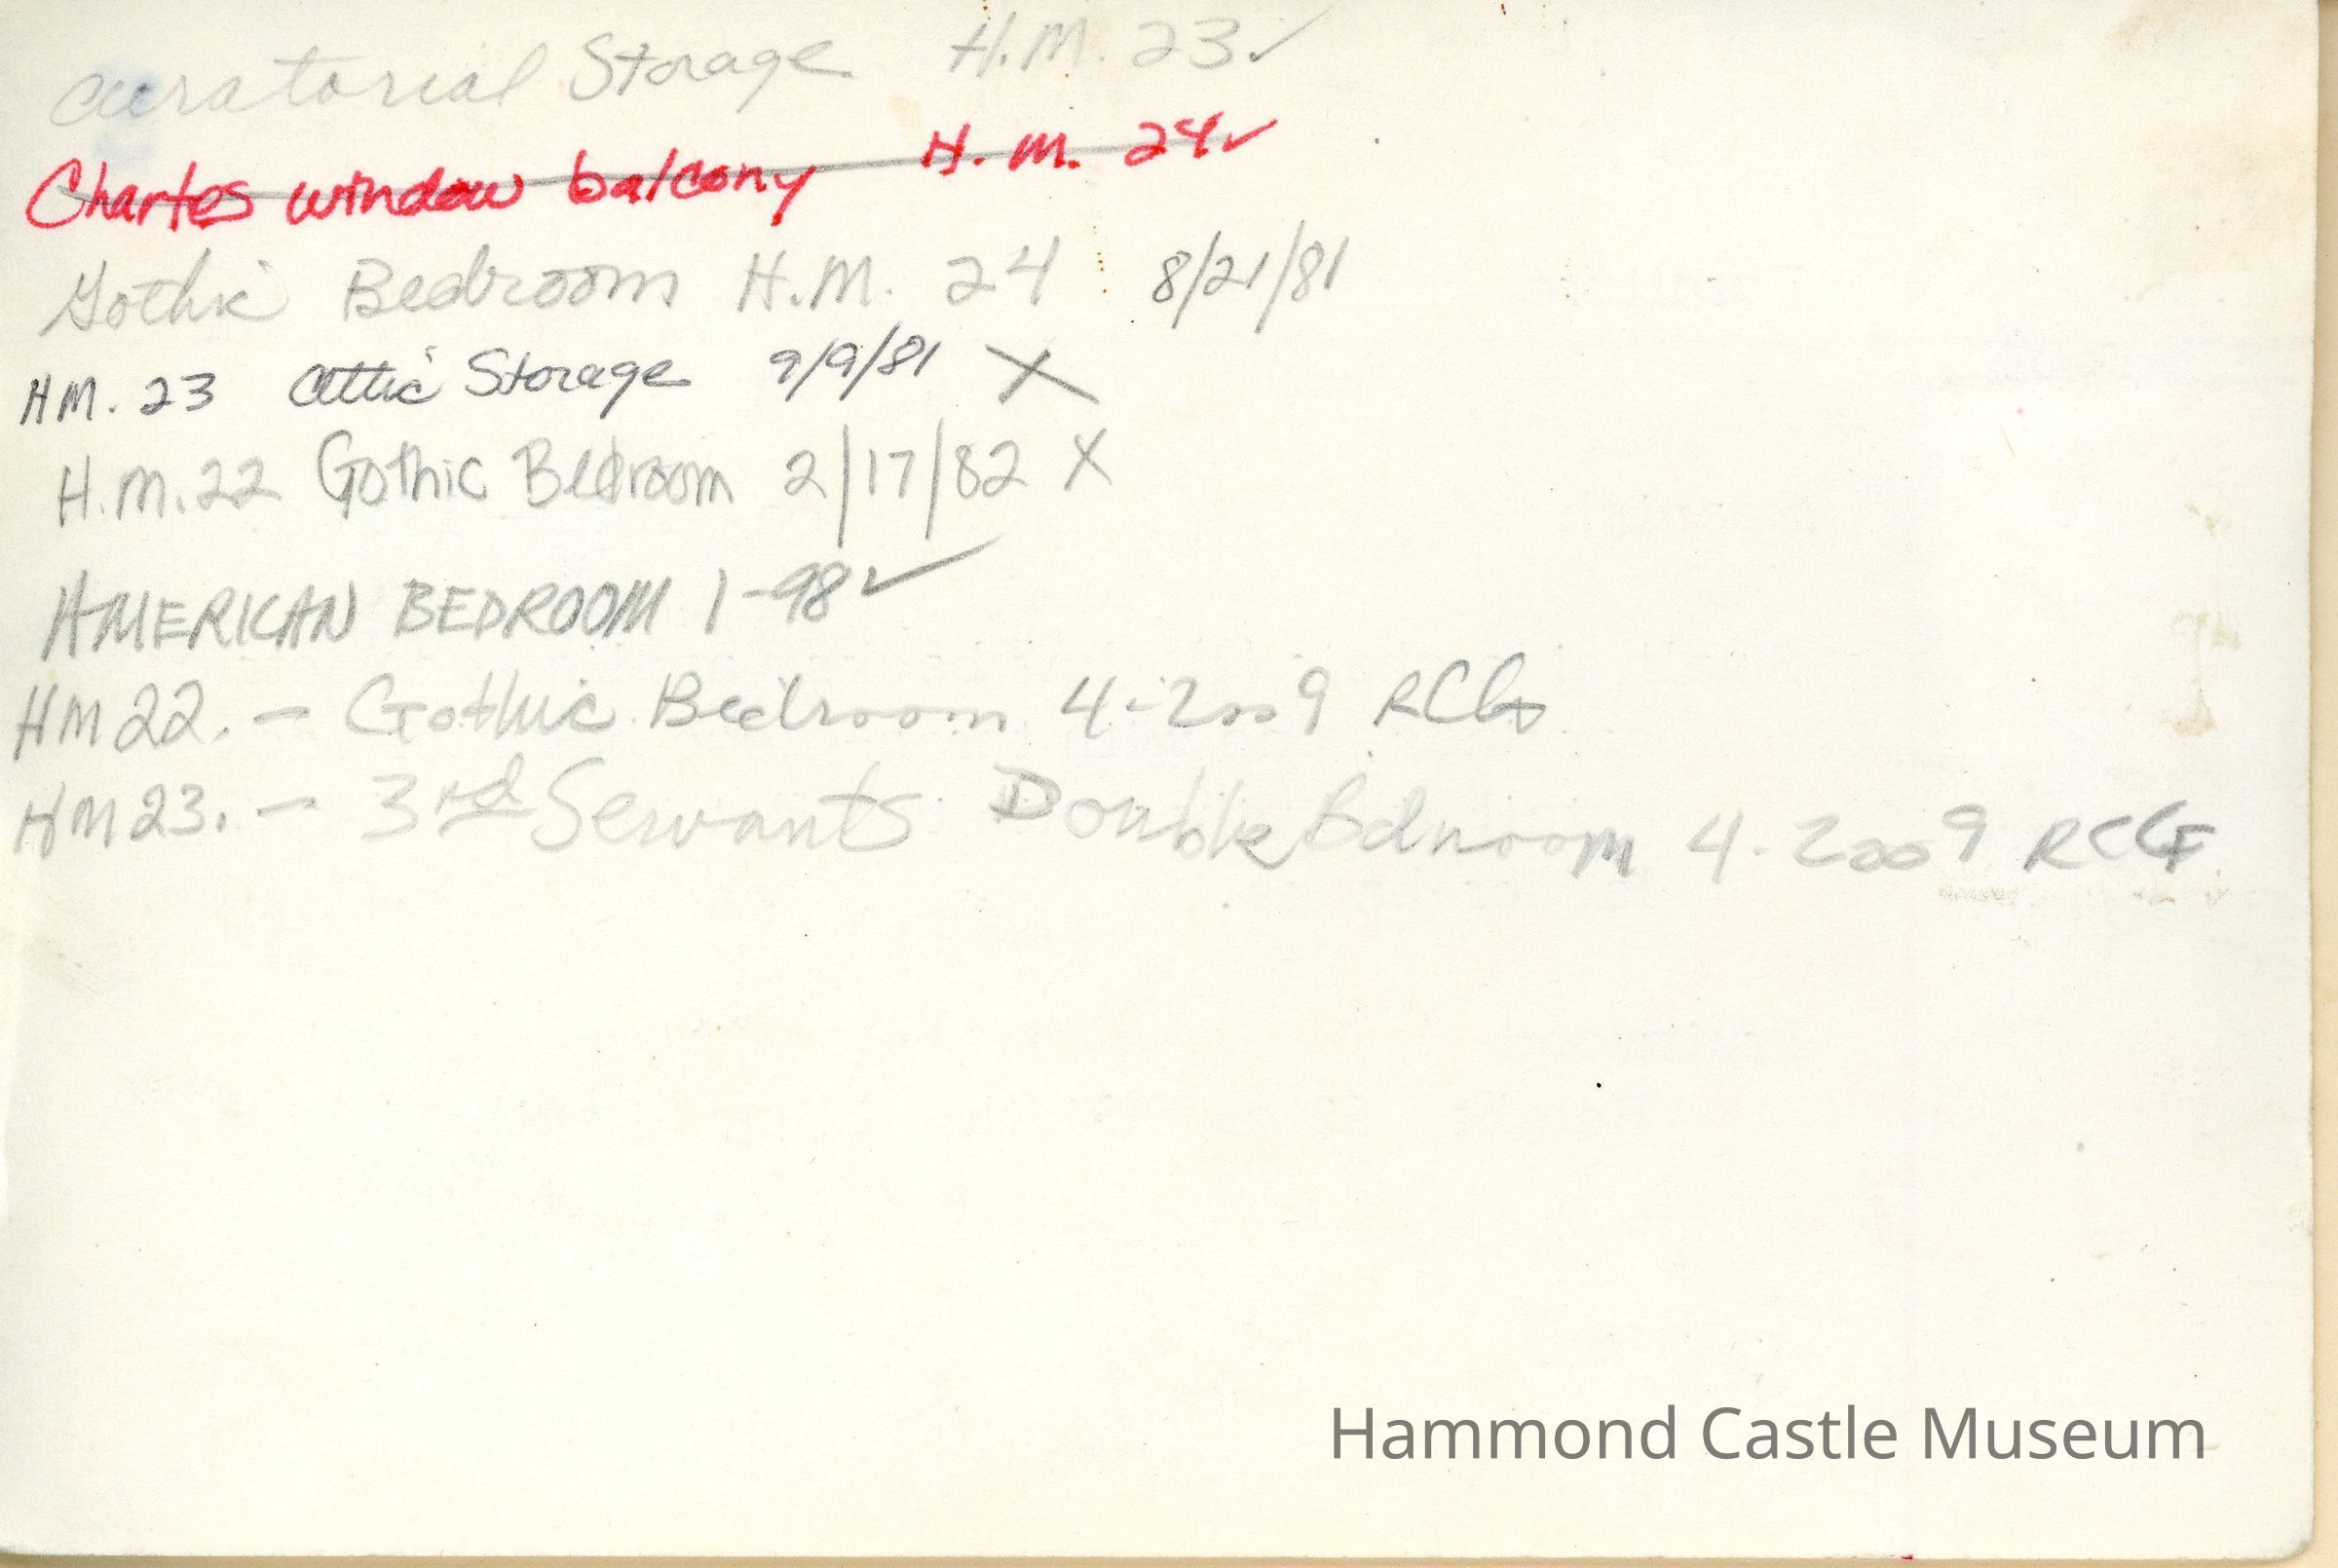 Curatorial Storage H.M. 23 ✓
Chartes window balcony H.M. 24 ✓
Gothic Bedroom H.M. 24 8/21/81
HM. 23 Attic Storage 9/9/81 X
H.M. 22 Gothic Bedroom 2/17/82 X
AMERICAN BEDROOM 1-98 ✓
HM 22. - Gothic Bedroom 4-2009 RCG
HM 23. - 3rd Servants Double Bdnroom 4-2009 RCG
Hammond Castle Museum